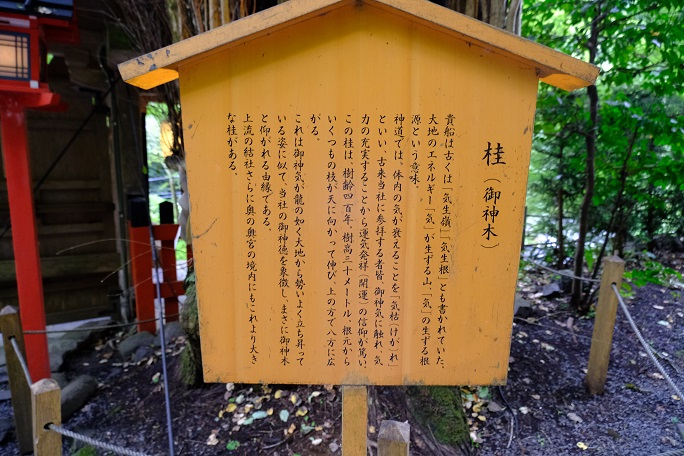 桂（御神木）
貴船は古くは「気生嶺」「気生根」とも書かれていた。
大地のエネルギー「気」が生ずる山、「気」の生ずる根
源という意味。
神道では、体内の気が衰えることを「気枯（けがれ）」
といい、古来当社に参拝する者皆、御神気に触れ、気
力の充実することから運気発祥（開運）の信仰が篤い。
この桂は、樹齢四百年、樹高三十メートル、根元から
いくつもの枝が天に向かって伸び、上の方で八方に広
がる。
これは御神気が龍の如く大地から勢いよく立ち上って
いる姿に似て、当社の御神徳を象徴し、まさに御神木
と仰がれる由縁である。
上流の結社さらに奥の奥宮の境内にもこれより大き
な桂がある。